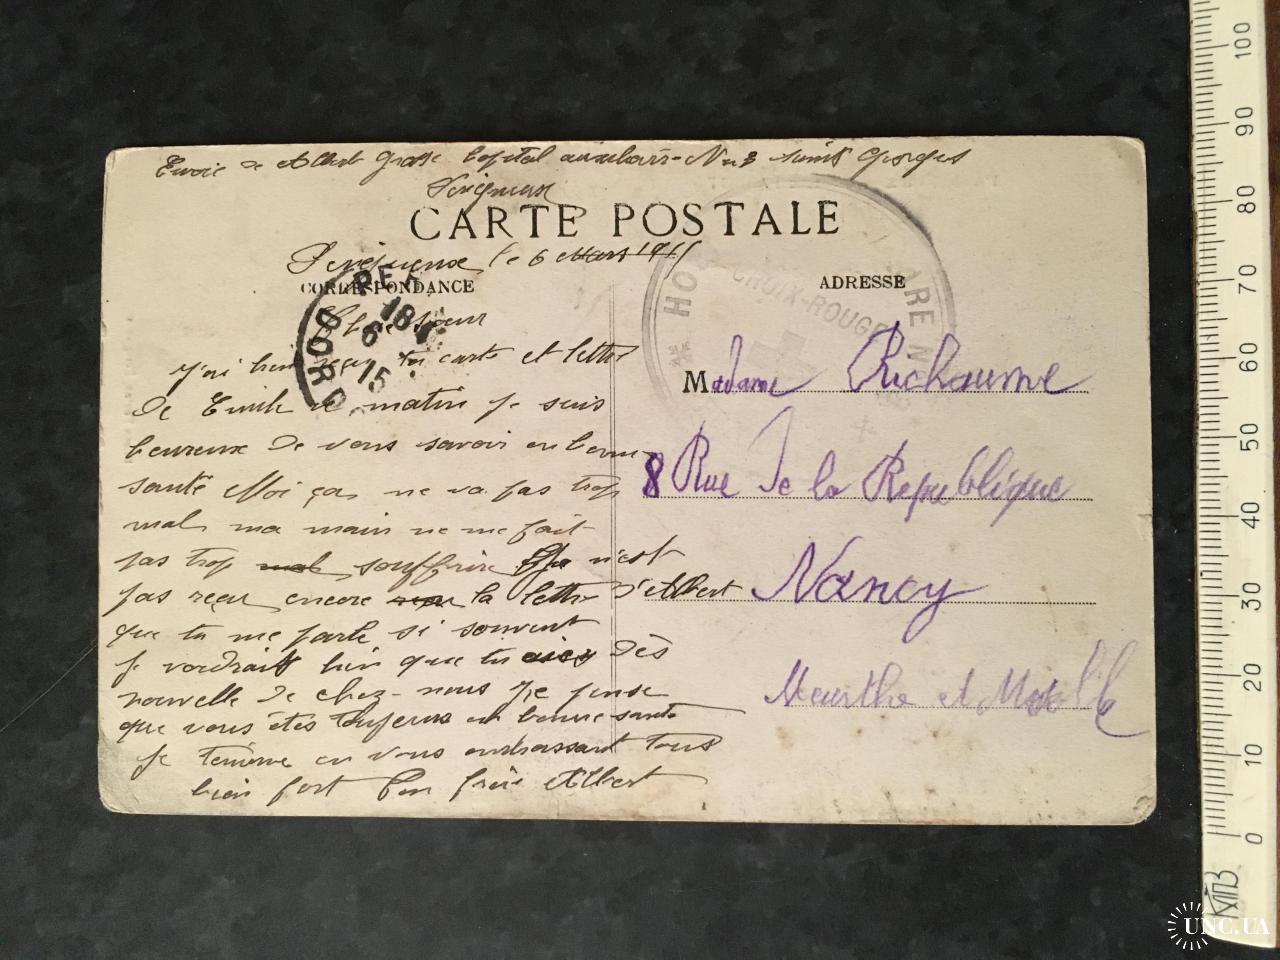 Envoie de Albert Grosse hopital auxiliaire No 3 saint Georges
Périgueux
CARTE POSTALE
Périgueux le 6 Mars 1915
CORRESPONDANCE
ADRESSE
Chère sœur
j'ai bien reçu ta carte et lettre
de Emile ce matin je suis
heureuse de vous savoir en bonne
santé Moi ça ne va pas trop
mal ma main ne me fait
pas trop mal souffrire n'est
pas reçu encore la lettre d'Albert
que tu me parle si souvent
je vordrais bien que tu dès
nouvelle de chez-nous je pense
que vous êtes toujours en bonne santé
je termine en vous embrassant tous
bien fort ton frère Albert
18
6
15
DORD
HO ARE N
CROIX-ROUGE
Madame Richaume
8 Rue De la Republique
Nancy
Meurthe et Moselle
0 10 20 30 40 50 60 70 80 90 100
ХІІПЗ
UNC.UA